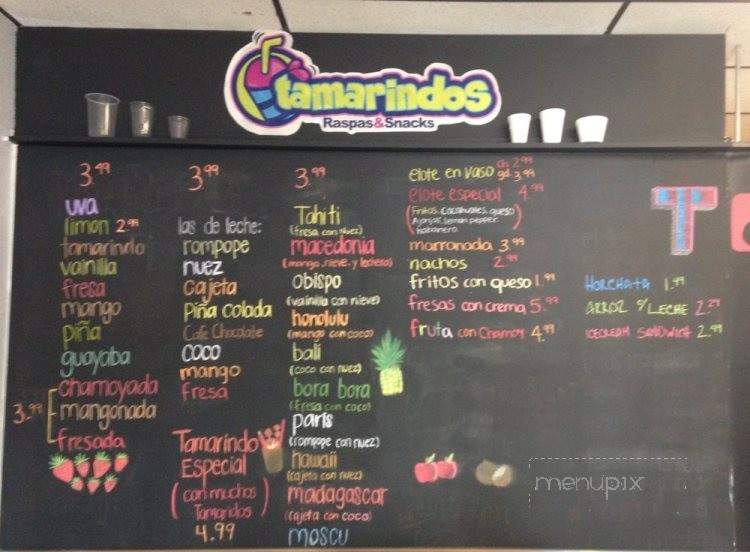 tamarindos
Raspas&Snacks
3.49
uva
limon 2.99
tamarindo
vainilla
fresa
mango
piña
guayaba
chamoyada
3.99 mangonada
fresada
3.99
las de leche:
rompope
nuez
cajeta
piña colada
Cafe Chocolate
coco
mango
fresa
Tamarindo
Especial
(con muchos
Tamarindos)
4.99
3.99
Tahiti
(fresa con nuez)
macedonia
(mango, nieve, y lechera)
obispo
(vainilla con nieve)
honolulu
(mango con coco)
bali
(coco con nuez)
bora bora
(fresa con coco)
paris
(rompope con nuez)
hawaii
(cajeta con nuez)
madagascar
(cajeta con coco)
moscu
elote en vaso ch 2.99
gd 3.99
elote especial 4.99
(Fritos, cacahuates, queso
lemon pepper
habanero)
marranada 3.99
nachos 2.99
fritos con queso 1.99
fresas con crema 5.99
fruta con Chamoy 4.99
T
Horchata 1.99
Arroz c/ Leche 2.29
Icecream Sandwich 2.99
menupix